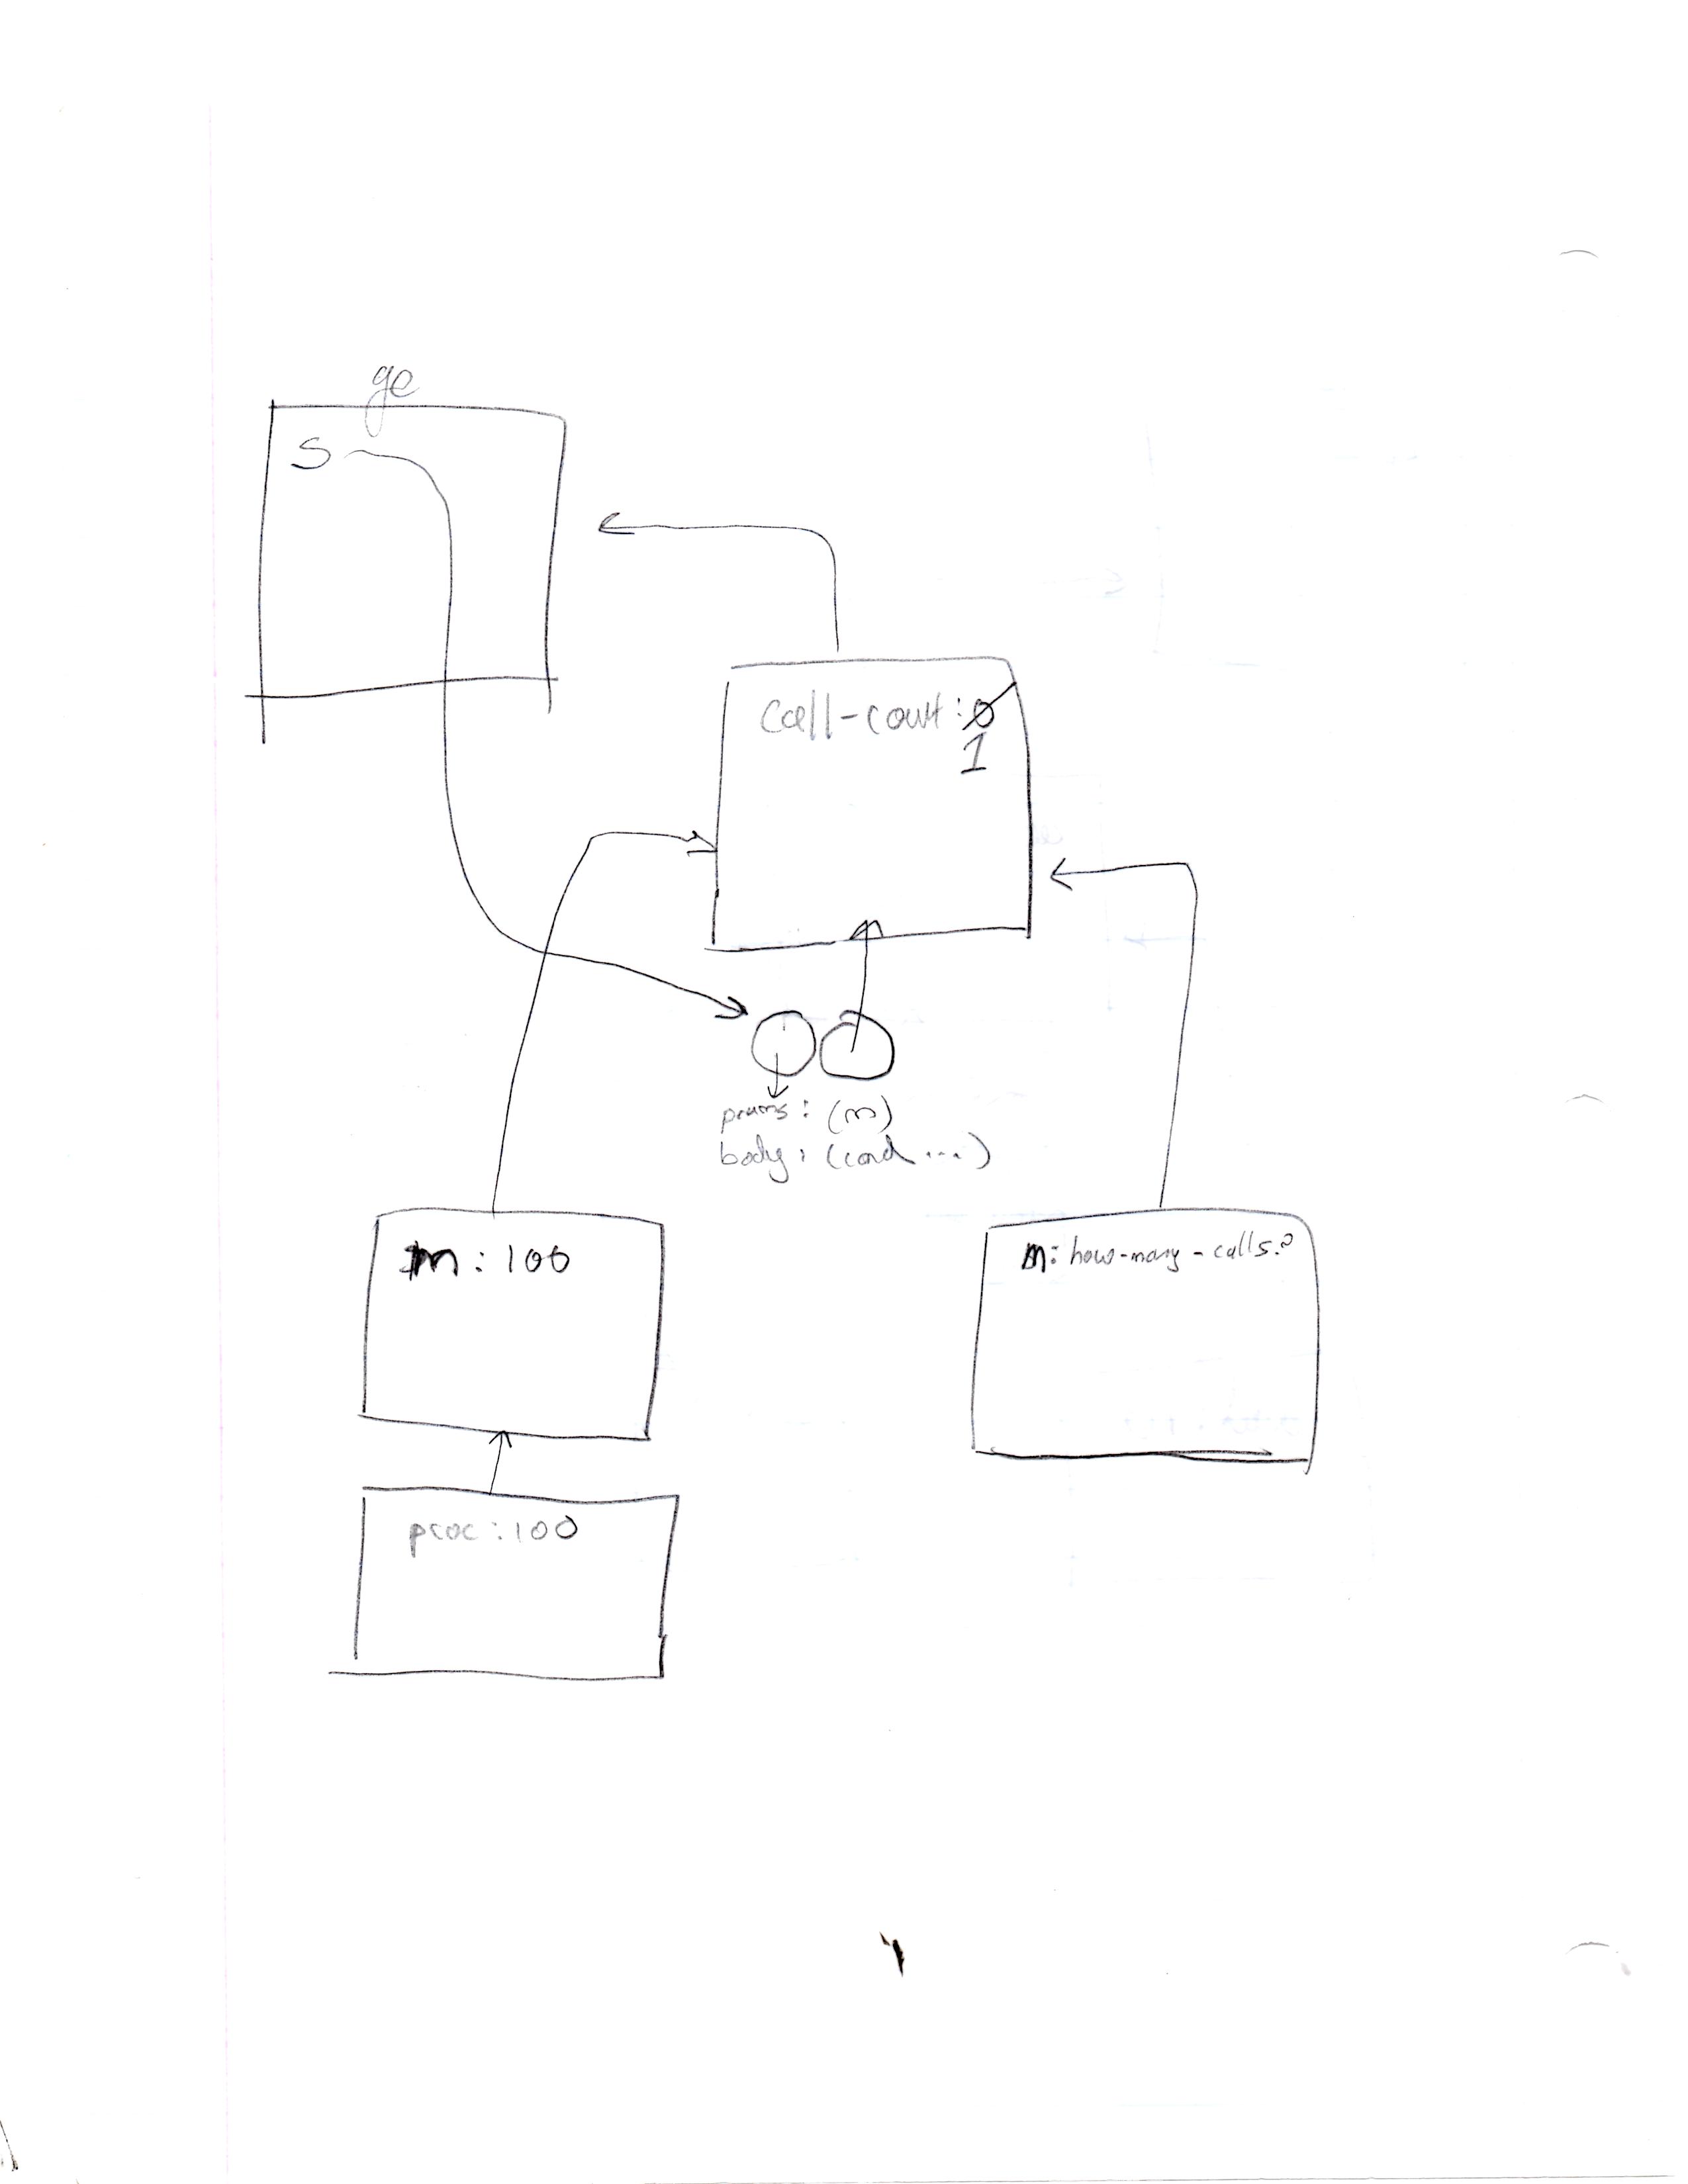 ge
S
call-count: 0
1
params: (m)
body: (cond ...)
m: 100
m: how-many-calls?
proc: 100